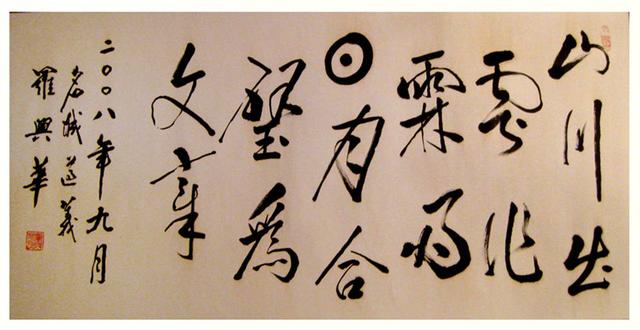 山川出
雲作
霖雨
日月合
璧為
文章
二〇〇八年九月
名城遵義
羅興華